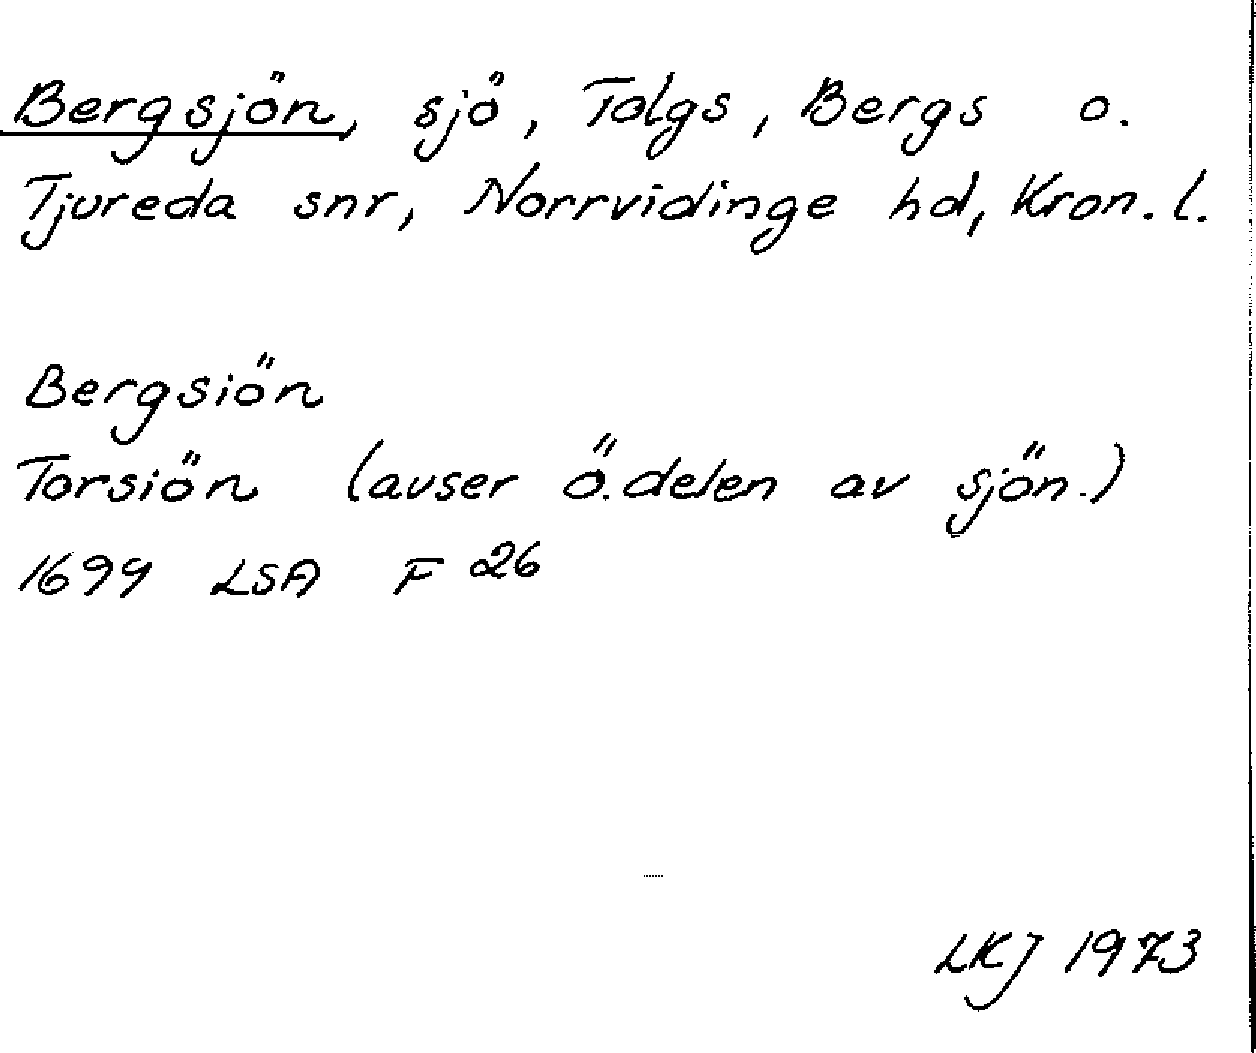 Bergsjön, sjö, Tolgs, Bergs o.
Tjureda snr, Norrvidinge hd, Kron. l.
Bergsiön
Torsiön (avser ö. delen av sjön.)
1699 LSA F 26
LKJ 1973